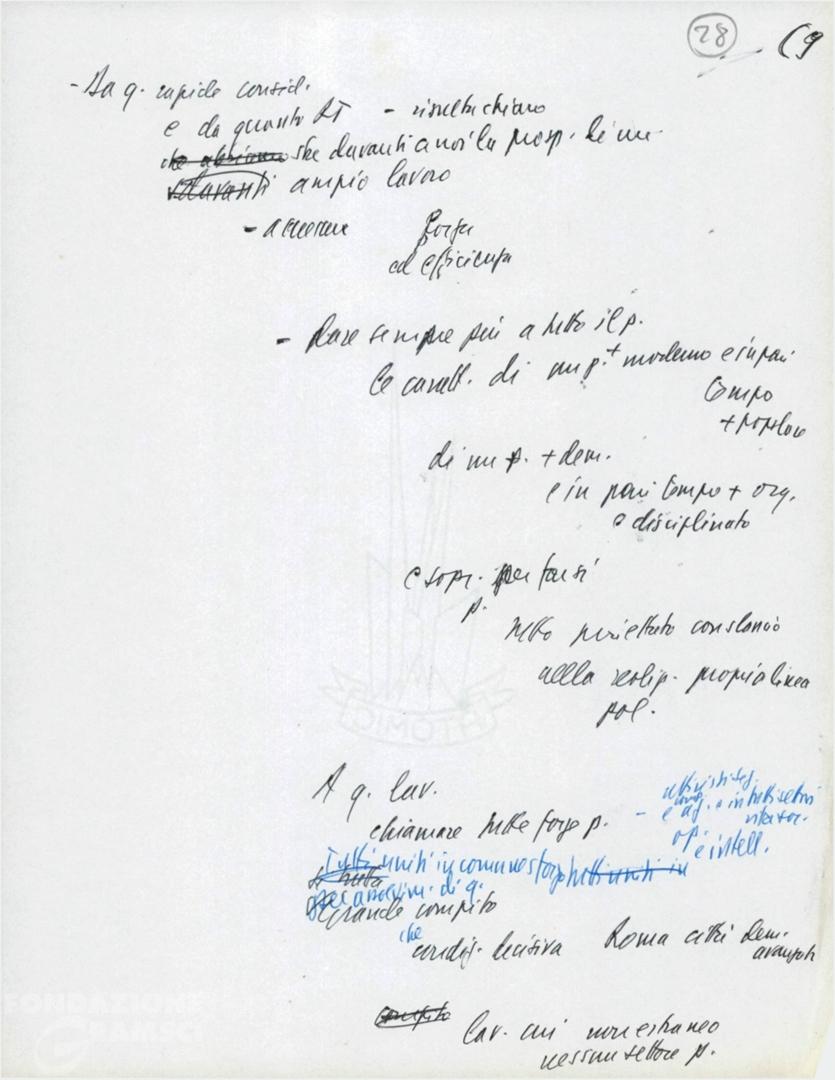 28 (9
- Da q. rapide consid.
e da quanto - risulta chiaro
che abbiamo che davanti a noi la prosp. di un
davanti ampio lavoro
- accrescere forza
ed efficienza
- Dare sempre più a tutto il p.
le caratt. di un p. + moderno e in pari
tempo
+ popolare
di un p. + dem.
e in pari tempo + org.
e disciplinato
e sopr. per farsi
p.
tutto proiettato con slancio
nella realiz. propria linea
pol.
A q. lav.
chiamare tutte forze p. - attivisti
e in tutti settori
op.
e intell.
Tutti uniti in comune sforzo tutti uniti in
per assolvim. di q.
grande compito
che
condiz. decisiva Roma città dem.
avanzata
compito
lav. cui non estraneo
nessun settore p.
ATOMIC
FONDAZIONE
GRAMSCI